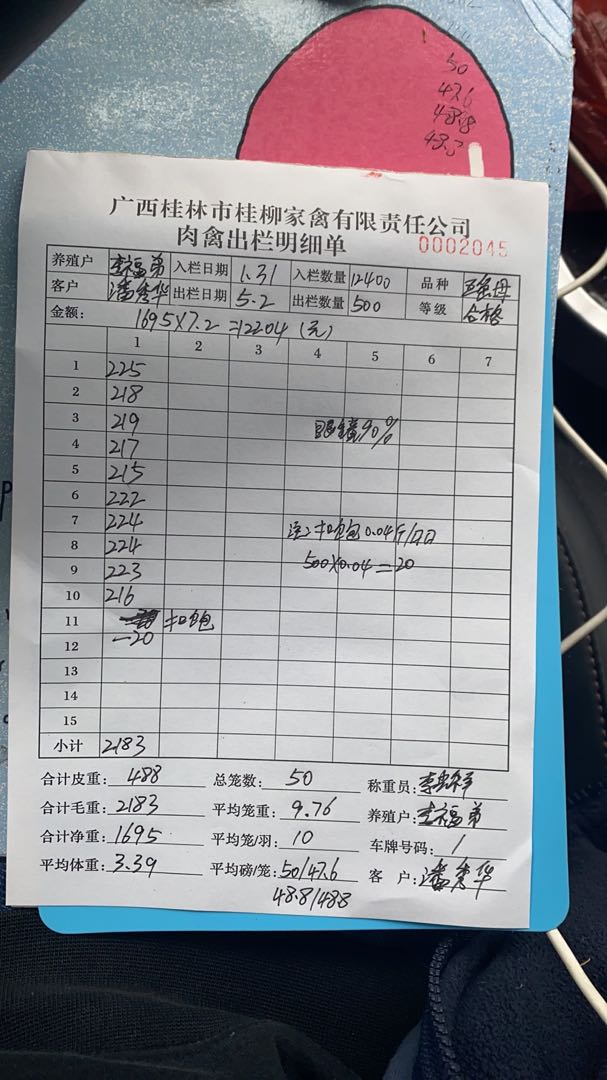 50
47.6
48.8
广西桂林市桂柳家禽有限责任公司
肉禽出栏明细单 0002045
养殖户 李福弟 入栏日期 1.31 入栏数量 12400 品种
客户 潘秀华 出栏日期 5.2 出栏数量 500 等级 合格
金额: 1695×7.2=12204(元)
1 2 3 4 5 6 7
1 225
2 218
3 219 眼镜90%
4 217
5 215
6 222
7 224 注:扣饱0.04斤/只
8 224 500×0.04=20
9 223
10 216
11 扣饱
12 -20
13
14
15
小计 2183
合计皮重: 488 总笼数: 50 称重员:
合计毛重: 2183 平均笼重: 9.76 养殖户: 李福弟
合计净重: 1695 平均笼/羽: 10 车牌号码: 1
平均体重: 3.39 平均磅/笼: 50/47.6 客 户: 潘秀华
48.8/48.8